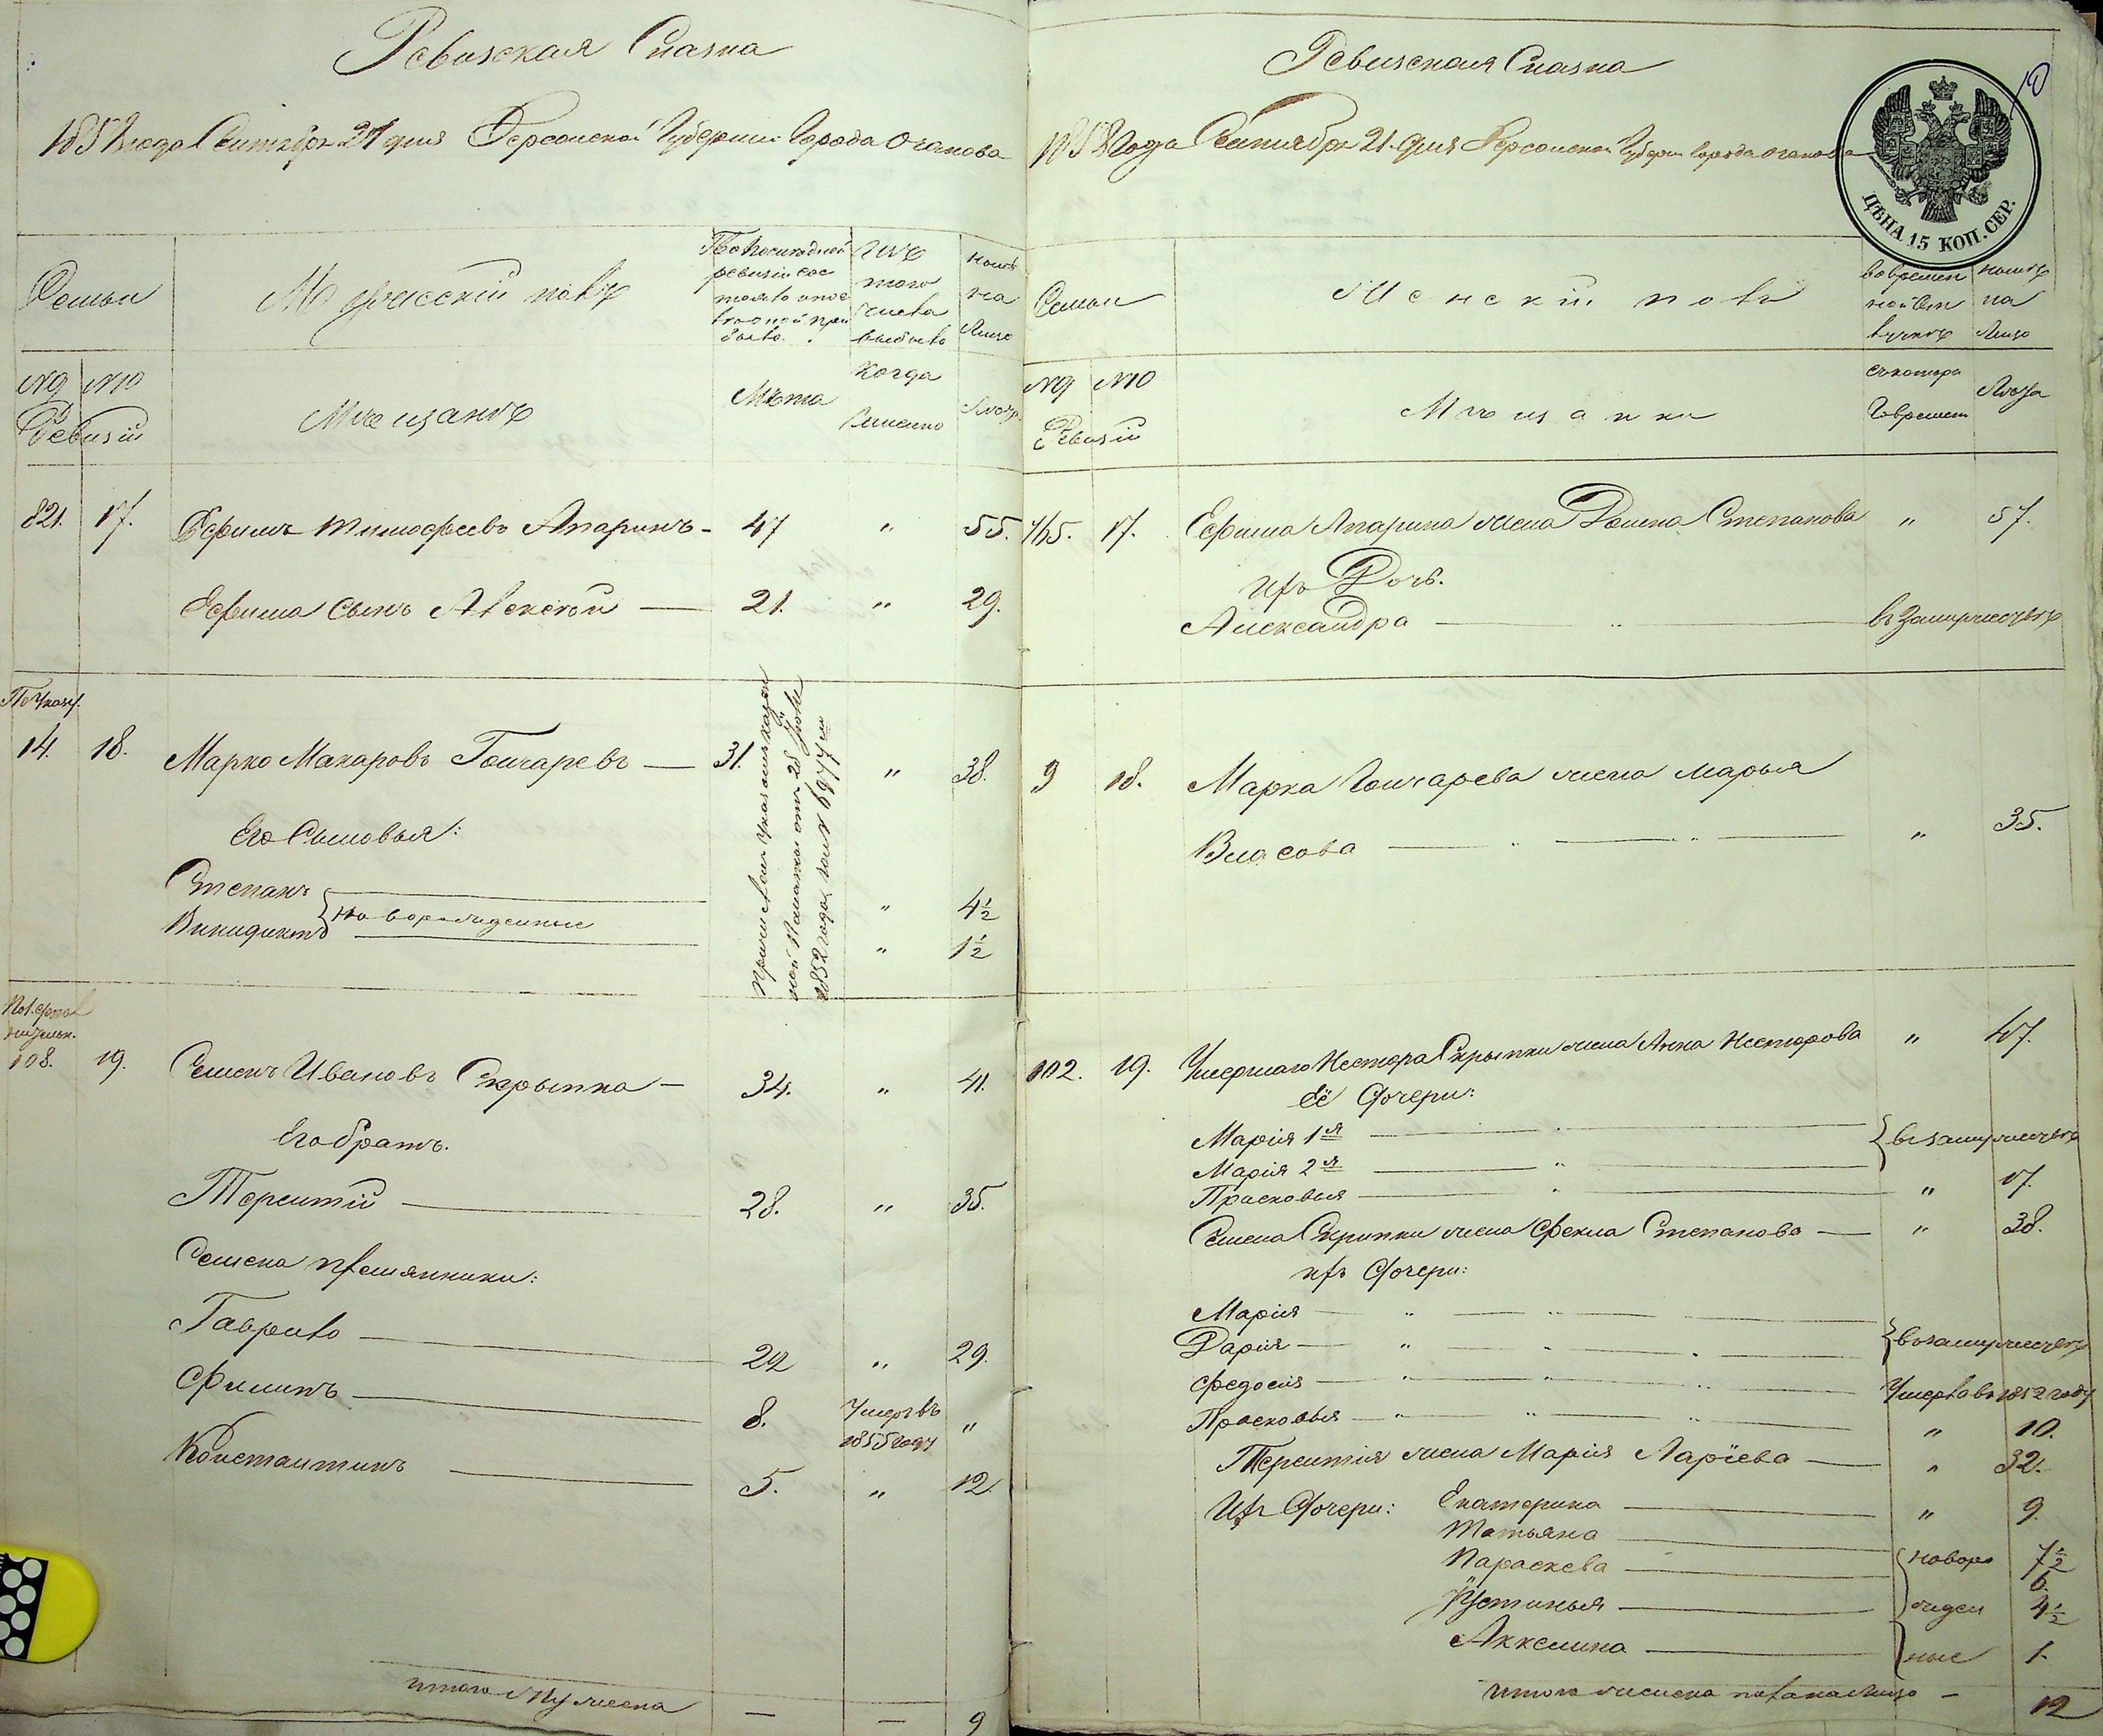 Ревизская Сказка
1858 года Сентября 21 дня Херсонской Губернии Города Очакова
Семьи
Мужеский полъ
По последней
ревизии сос
тояло и после
оной при
было.
Изъ
того
числа
выбыло
Ныне
на
Лицо
№9 №10
Ревизiи
Мещанъ
Лета
Когда
Именно
Лета
821. 17. Ефимъ Тимофеевъ Апаринъ - 47 " 55.
Ефима Сынъ Алексей — 21. " 29.
По Указу
14. 18. Марко Макаровъ Гончаревъ — 31. " 38.
Причислен Указомъ Казен
ной Палаты отъ 28 Июля
1852 года за № 6977 м
Его Сыновья:
Степанъ " 4½
Виникдиктъ " 1½
Новорожденные
108. 19. Семенъ Ивановъ Скрыпка — 34. " 41.
Его братъ.
Терентiй — 28. " 35.
Семена племянники:
Гаврило — 22 " 29.
Филипъ — 8. Умеръ въ 1855 году "
Константинъ — 5. " 12.
итого Мужеска — — 9
Ревизская Сказка
1858 Года Сентября 21. дня Херсонской Губерн Города Очакова
ЦѢНА 15 КОП. СЕР.
Семьи
Женскiй полъ
Во времен
ной от
лучке
Ныне
на
Лицо
№9 №10
Ревизiи
Мещанки
Съ котора
Го времени
Лета
765. 17. Ефима Апарина жена Домна Степанова " 57.
Ихъ Дочь.
Александра — въ замужестве
9 18. Марка Гончарева жена Марья
Власова — " 35.
102. 19. Умершаго Нестора Скрыпки жена Анна Нестерова " 47.
Её Дочери:
Марiя 1я
Марiя 2я
въ замужестве
Прасковья — " 17.
Семена Скрипки жена Фекла Степанова — " 38.
ихъ Дочери:
Марiя
Дарiя
въ замужестве
Федосiя — Умерла въ 1852 году
Прасковья — " 10.
Терентiя жена Марiя Ларiева — " 32.
Ихъ Дочери: Екатерина — " 9.
Татьяна — 7½
Параскева — 6.
Устинья — 4½
Аккелина — 1.
новоро
жден
ные
итого женска пола на лицо — 12